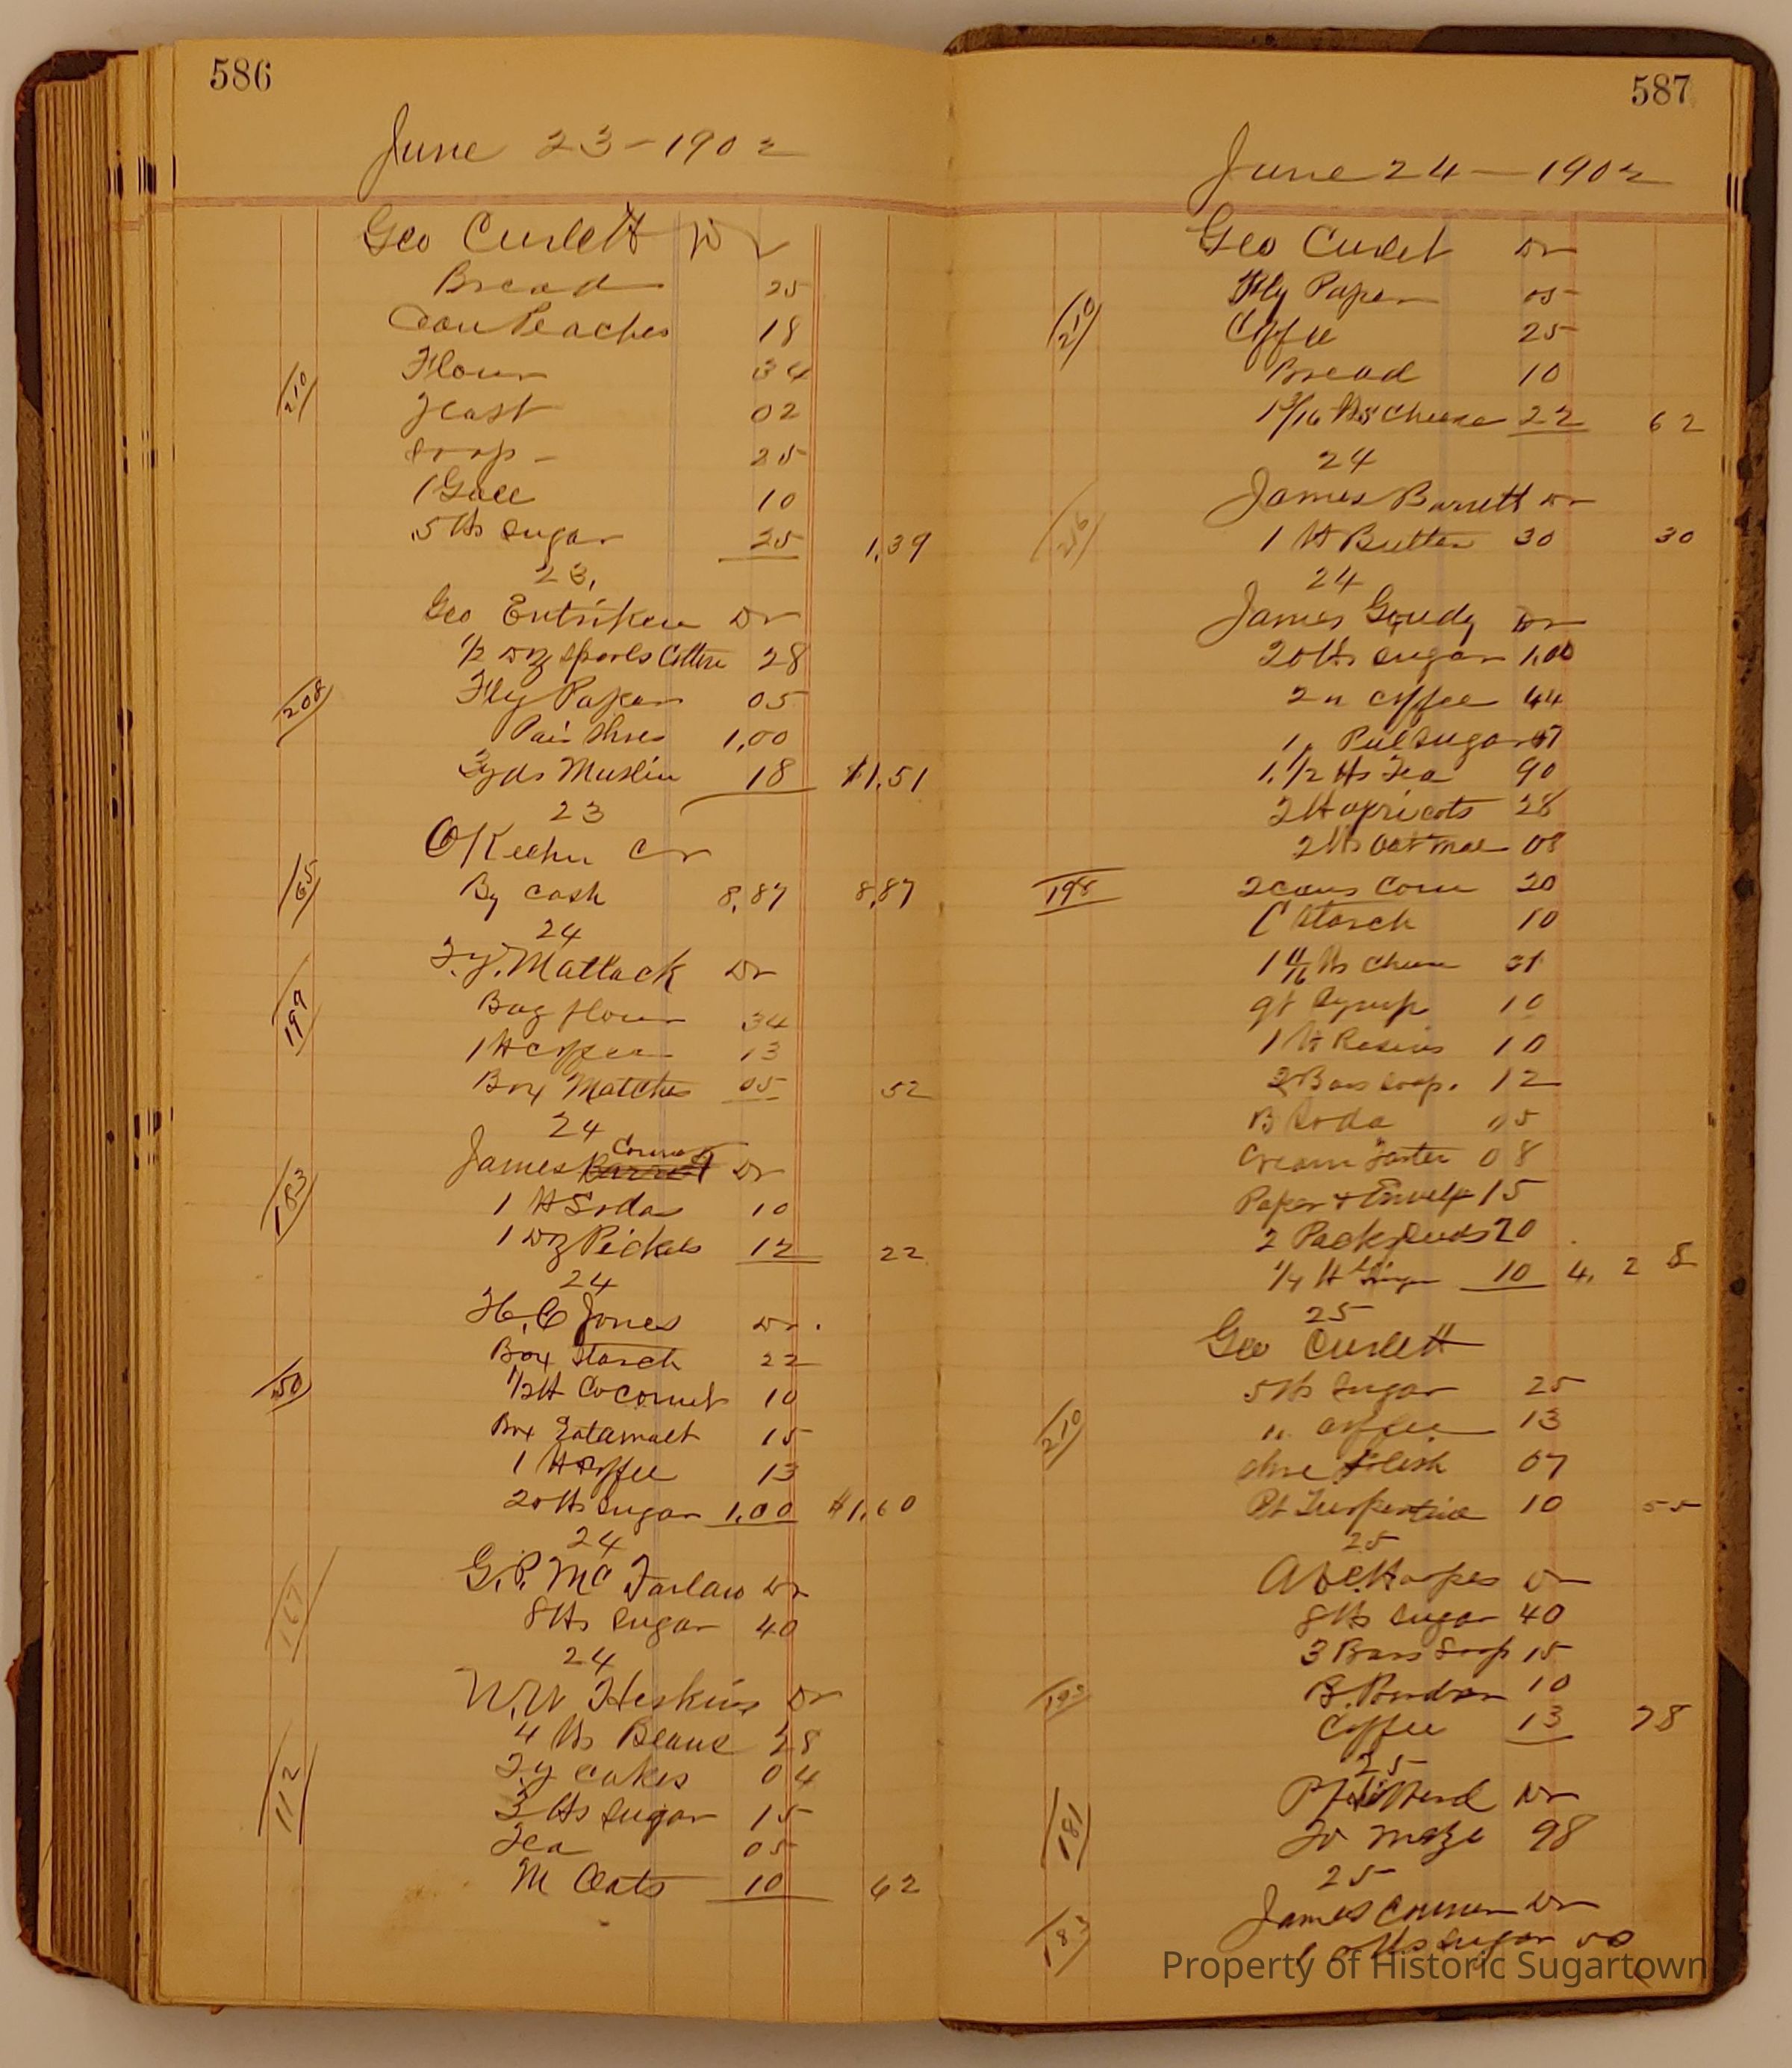 586
June 23 - 1902
Geo Curlett Dr
Bread 25
Can Peaches 18
210
Flour 34
Yeast 02
Soap - 25
1 Gall 10
5 lbs Sugar 25 1,39
23,
Geo Entriken Dr
1/2 Doz Spools Cotton 28
208
Fly Paper 05
Pair Shoes 1,00
3 yds Muslin 18 $1,51
23
Cr
165
By Cash 8,87 8,87
24
T.J. Matlack Dr
199
Bag flour 34
1 lb coffee 13
Box Matches 05 52
24
James Connor Dr
183
1 lb Soda 10
1 Doz Pickels 12 22
24
H. C Jones Dr.
Box Starch 22
150
1/2 lb Coconut 10
Box 15
1 lb Coffee 13
20 lbs Sugar 1,00 $1,60
24
G. P. Mc Farlan Dr
167
8 lbs Sugar 40
24
W. W Heskins Dr
4 lbs Beans 28
112
Cakes 04
3 lbs Sugar 15
Tea 05
M Oats 10 62
587
June 24 - 1902
Geo Curlet Dr
Fly Paper 05
210
Coffee 25
Bread 10
1 3/16 lbs Cheese 22 62
24
James Barrett Dr
216
1 lb Butter 30 30
24
James Goudy Dr
20 lbs Sugar 1,00
2 " coffee 44
1 " Pul Sugar 07
1, 1/2 lbs Tea 90
2 lb apricots 28
2 lbs Oat meal 08
198
2 cans Corn 20
C Starch 10
1 11/16 lbs Cheese 31
qt Syrup 10
1 lb Resins 10
2 Bars Soap. 12
B Soda 05
Cream Tarter 08
Paper & Envelp 15
2 Packs 20
1/4 lb Ginger 10 4, 2 8
25
Geo Curlett
5 lbs Sugar 25
210
" coffee 13
Shoe Polish 07
Pt Turpentine 10 55
25
Hoopes Dr
8 lbs Sugar 40
3 Bars Soap 15
193
B. Powder 10
Coffee 13 78
25
Dr
181
To Mdze 98
25
James Connor Dr
183
lbs Sugar 50
Property of Historic Sugartown